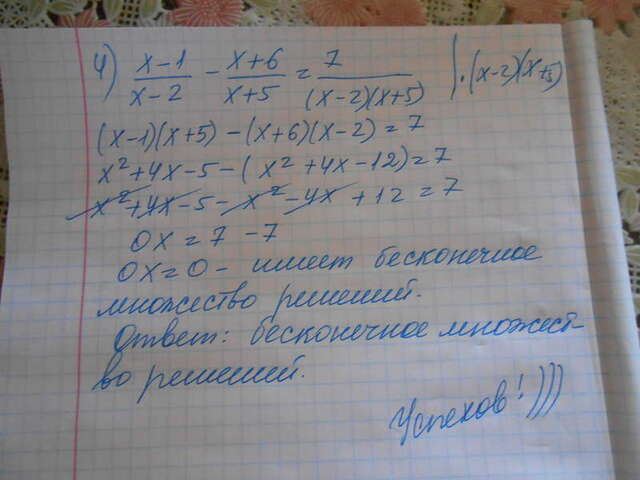 4) (x-1)/(x-2) - (x+6)/(x+5) = 7/((x-2)(x+5)) |·(x-2)(x+5)
(x-1)(x+5) - (x+6)(x-2) = 7
x²+4x-5-(x²+4x-12)=7
x²+4x-5-x²-4x+12=7
0x=7-7
0x=0- имеет бесконечное
множество решений.
Ответ: бесконечное множест-
во решений.
Успехов! )))